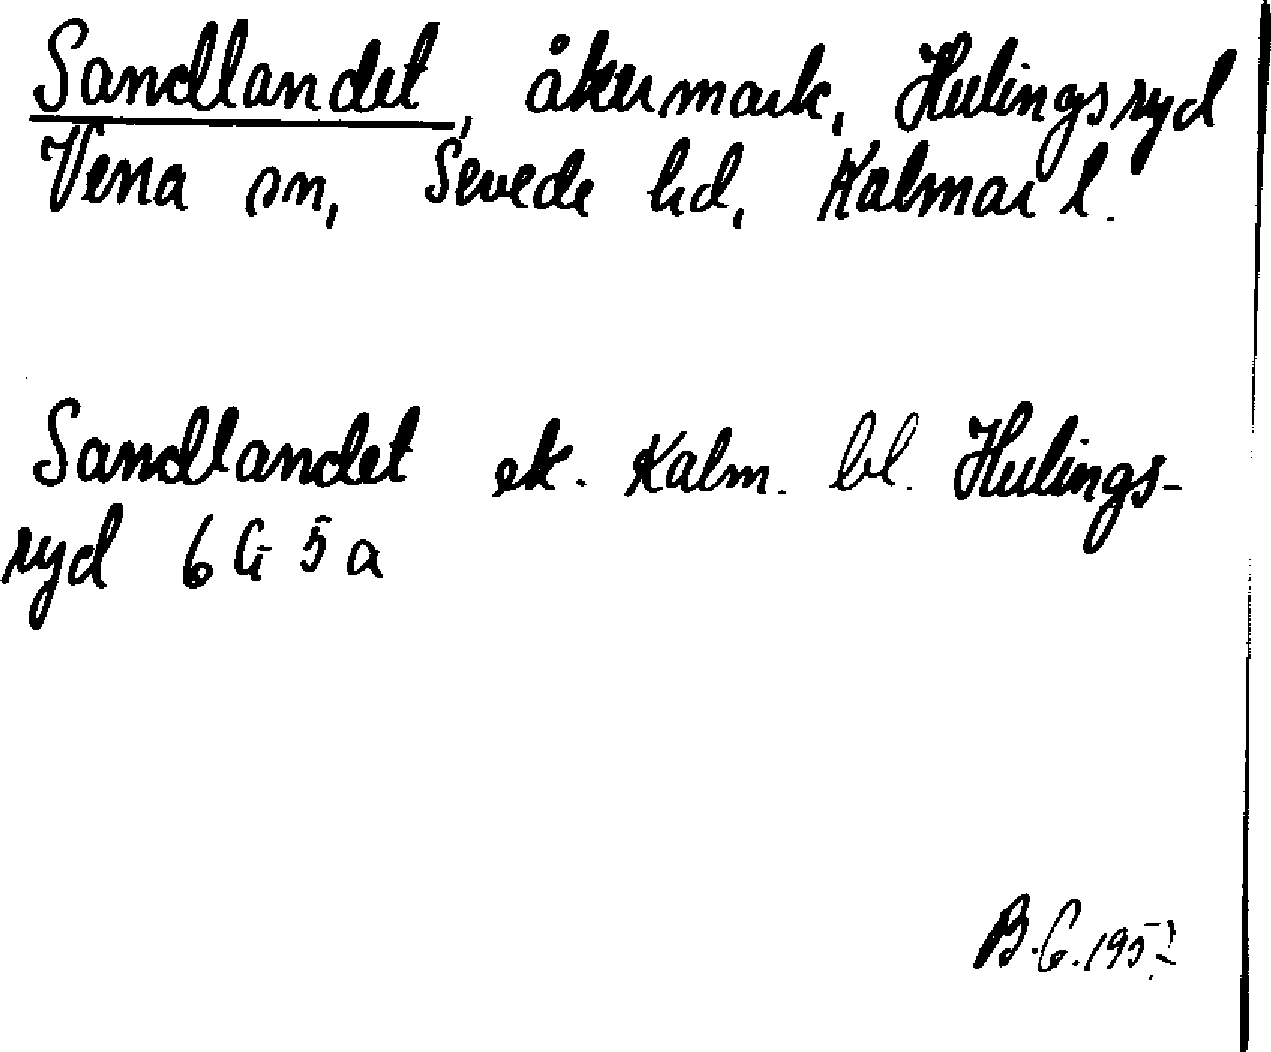 Sandlandet, åkermark, Hulingsryd
Vena sn, Sevede hd, Kalmar l.
Sandlandet ek. Kalm. bl. Hulings-
ryd 6 G 5 a
B.G.